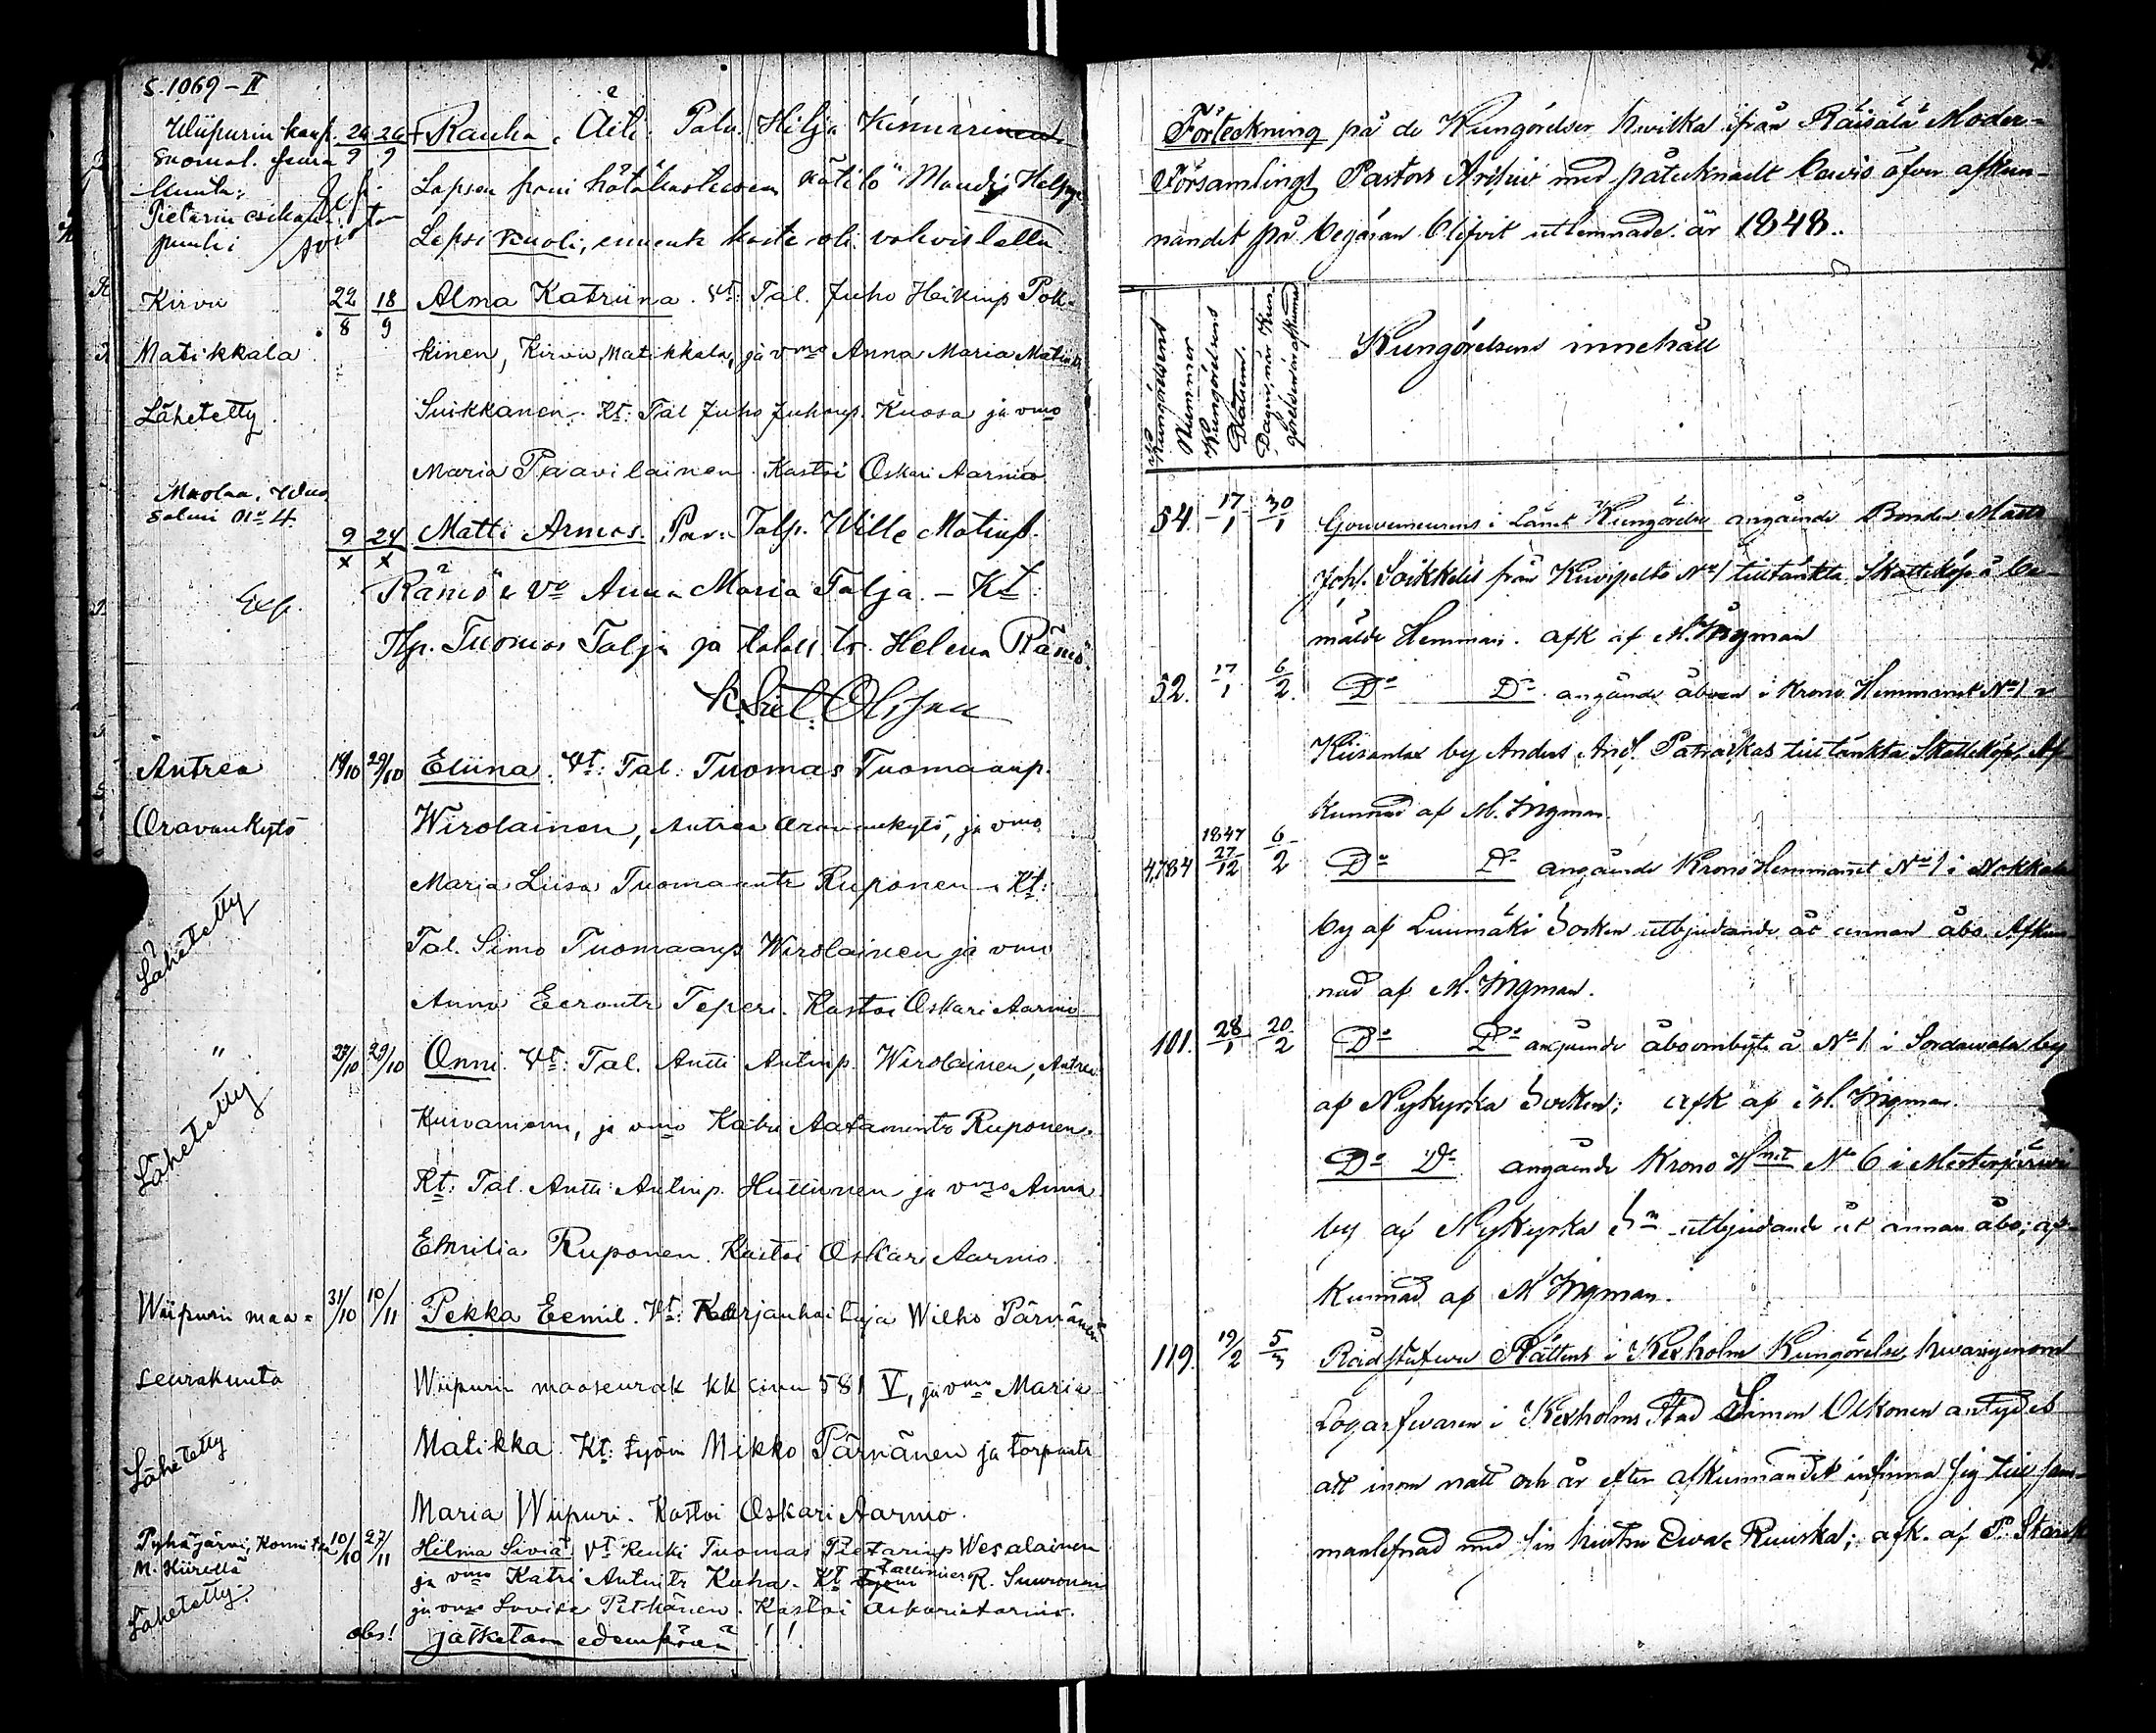 S. 1069 – II
Wiipurin kaup. 26/9 26/9 Rauha Aili. Palv. Hilja Kinnarinen.
Suomal. seura
kunta;
Lapsen hätäkasteesen kätilö Mandi
Pietarin esikaup.
puuhi
Lapsi kuoli, ennenk kaste oli vahvistettu
Kirvu 22/8 18/9 Alma Katriina. Vt: Tal. Juho Heikinp. Pok-
Matikkala kinen, Kirvu, Matikkala, ja vmo Anna Maria Matint
Lähetetty. Suikkanen. Kt: Tal Juho Juhonp. Kuosa ja vmo
Maria Paavilainen. Kastoi Oskari Aarnio
Muolaa,
Salmi No 4
9/X 24/X Matti Armas. Talp. Wille Matinp.
Exp. Rämö & Vo Anna Maria Talja. – Kt
Tlp. Tuomas Talja ja talell. tr. Helena Rämö.
Antrea 19/10 29/10 Eliina. Vt: Tal. Tuomas Tuomaanp.
Oravankytö Wirolainen, Antrea Oravankytö, ja vmo
Maria Liisa Tuomaantr Ruponen. Kt:
Lähetetty Tal. Simo Tuomaanp Wirolainen ja vmo
Anna Eerontr Teperi. Kastoi Oskari Aarnio
" 27/10 29/10 Onni. Vt: Tal. Antti Antinp. Wirolainen, Antrea
Kuivaniemi, ja vmo Katri Aatamintr Ruponen.
Lähetetty Kt: Tal. Antti Antinp. Huttunen ja vmo Anna
Emilia Ruponen. Kastoi Oskari Aarnio.
Wiipurin maa- 31/10 10/11 Pekka Eemil. Vt: Karjanhoitaja Wilho Pärnänen
seurakunta Wiipurin maaseurak kk sivu 581 V, ja vmo Maria
Lähetetty Matikka. Kt: työm Mikko Pärnänen ja torpantr
Maria Wiipuri. Kastoi Oskari Aarnio.
Pyhäjärvi, Konnitsa 10/10 27/11 Hilma Siviä Vt Renki Tuomas Pietarinp Wesalainen
M. Kiirellä ja vmo Katri Antintr Kuha. Kt tallimies R. Suuronen
Lähetetty. ja vmo Loviisa Pitkänen. Kastoi Oskari Aarnio.
obs! jatketaan edempänä !!
Förteckning på de Kungörelser hwilka ifrån Räisälä Moder-
Församlings Pastors Archiv med påteknadt bewis öfver afkun-
nandet på begäran blifvit utlemnade år 1848.
Kungörelsens Nummer
Kungörelsens Datum.
Dagen, när Kungörelsen är afkunnad
Kungörelsens innehåll
54. 17/1 30/1 Gouverneurens i Länet Kungörelse angående Bonden Matts
Johs. Soikkelis från Kuispelto No 1 tilltänkta Skatteköp å be-
mälde Hemman. afk af M. Ingman
52. 17/1 6/2 Do Do angående åboen i Krono Hemmanet No 1 i
Kiisanlax by Anders And. Patraikas tilltänkta Skatteköp, Af-
kunnad af M. Ingman.
4784 1847 27/12 6/2 Do Do angående Krono Hemmanet No 1 i Nokkala
by af Luumäki Socken utbjudande åt annan åbo. Afkun-
nad af M. Ingman.
101. 28/1 20/2 Do Do angående åboombyte å No 1 i Sordavala by
af Nykyrka Socken; afk af M. Ingman.
Do Do angående Krono Hmet No 6 i Mesterjärvi
by af Nykyrka Sn utbjudande åt annan åbo; af-
kunnad af M Ingman.
119. 19/2 5/3 Rådstufwu Rättens i Kexholm Kungörelse, hwarigenom
Logarfwaren i Kexholms Stad Simon Oskonen antydes
att inom natt och år efter afkunnandet infinna sig till sam-
manlefnad med sin hustru Ewa Ruuska; afk. af P. Starck